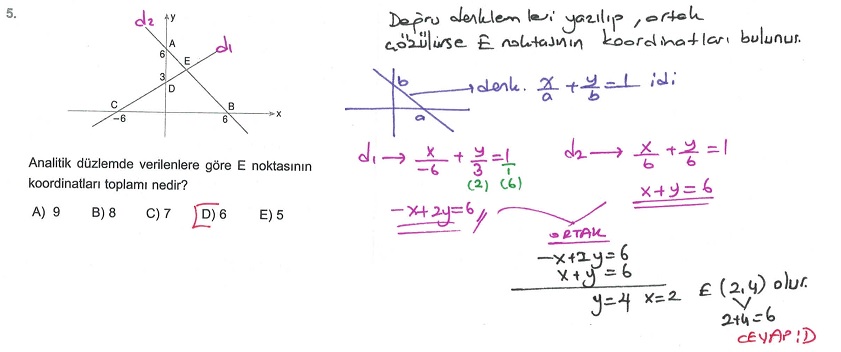 5.
d2
y
A
d1
6
E
3
D
C
B
-6
6
x
Analitik düzlemde verilenlere göre E noktasının
koordinatları toplamı nedir?
A) 9 B) 8 C) 7 D) 6 E) 5
Doğru denklemleri yazılıp, ortak
çözülürse E noktasının koordinatları bulunur.
b
a
denk. x/a + y/b = 1 idi
d1 → x/-6 + y/3 = 1/1
(2) (6)
-x+2y=6
d2 → x/6 + y/6 = 1
x+y=6
ORTAK
-x+2y=6
x+y=6
y=4 x=2
E (2,4) olur.
2+4=6
CEVAP:D